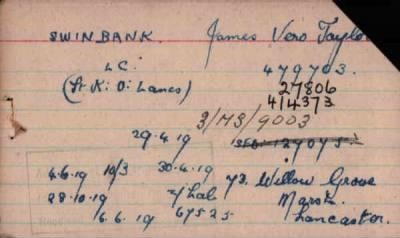 SWINBANK. James Vero Taylor
L.C. 479703.
(St. K: O: Lancs) 27806
414373
3/MS/9003
29.4.19
4.6.19 10/3 30.4.19 73. Willow Grove
28.10.19 Marsh.
6.6.19 67525 Lancaster.